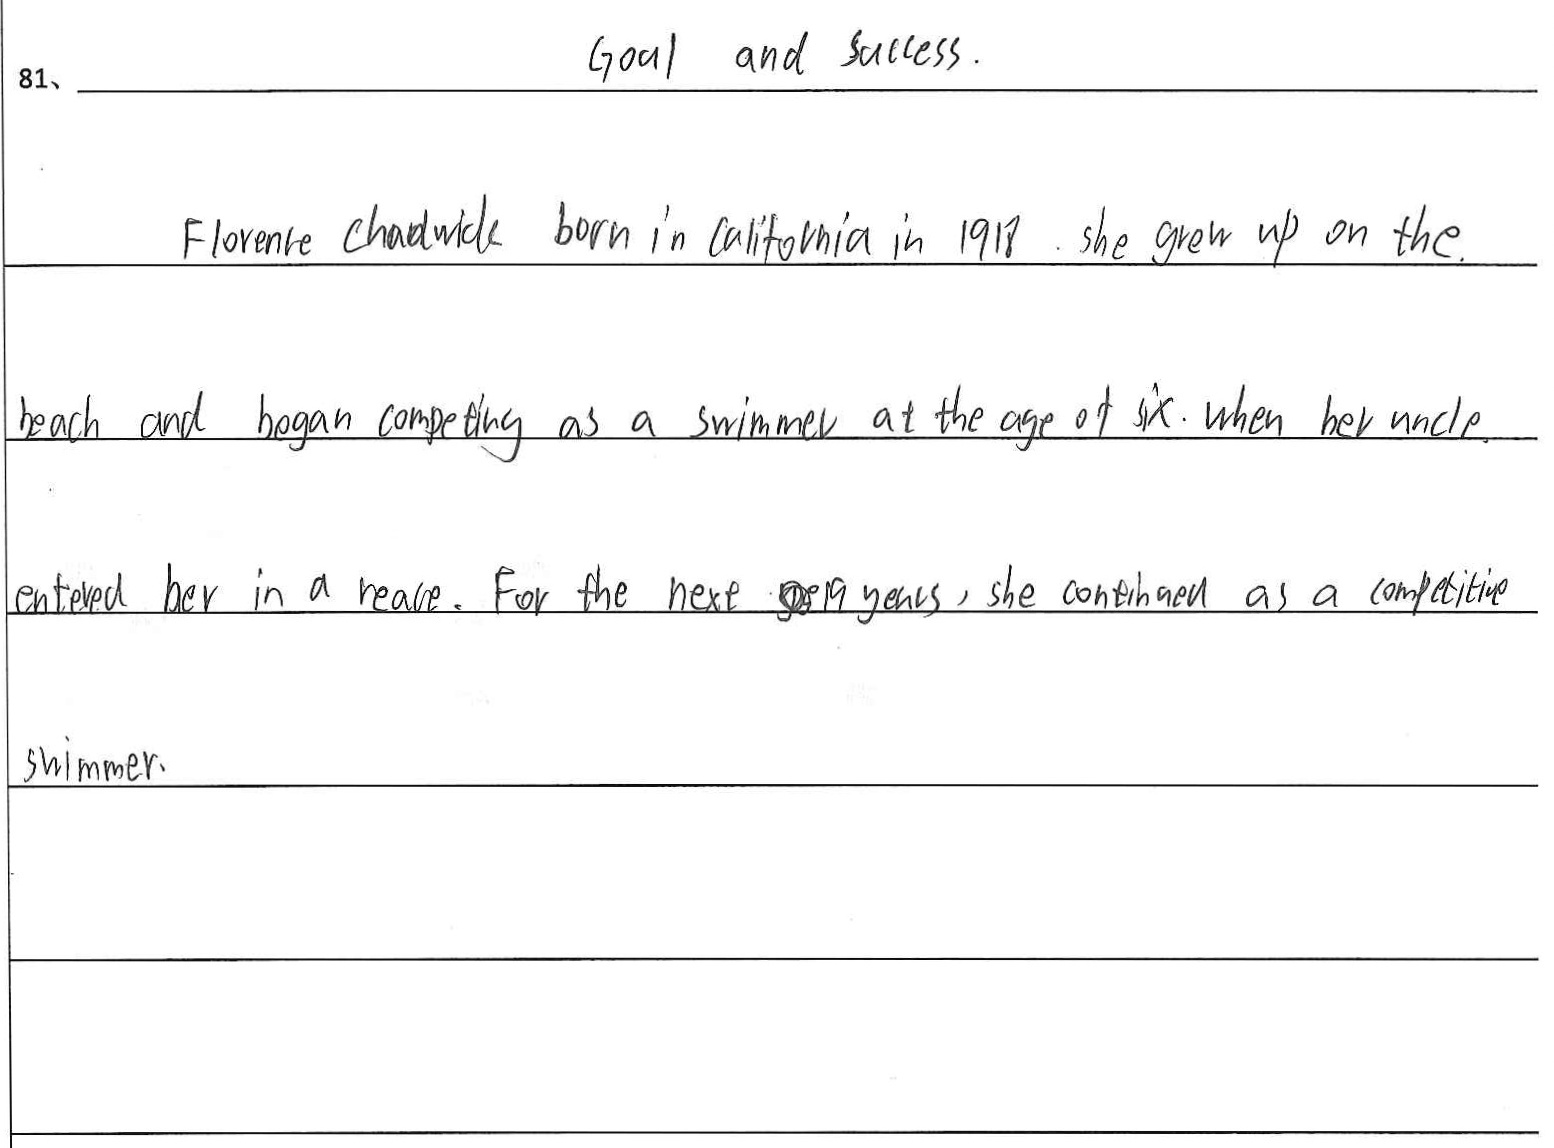 Goal and Success.
81、
Florence Chadwick born in California in 1918. she grew up on the.
beach and began competing as a swimmer at the age of six. when her uncle.
entered her in a reace. For the next 19 years, she continued as a competitive
swimmer.